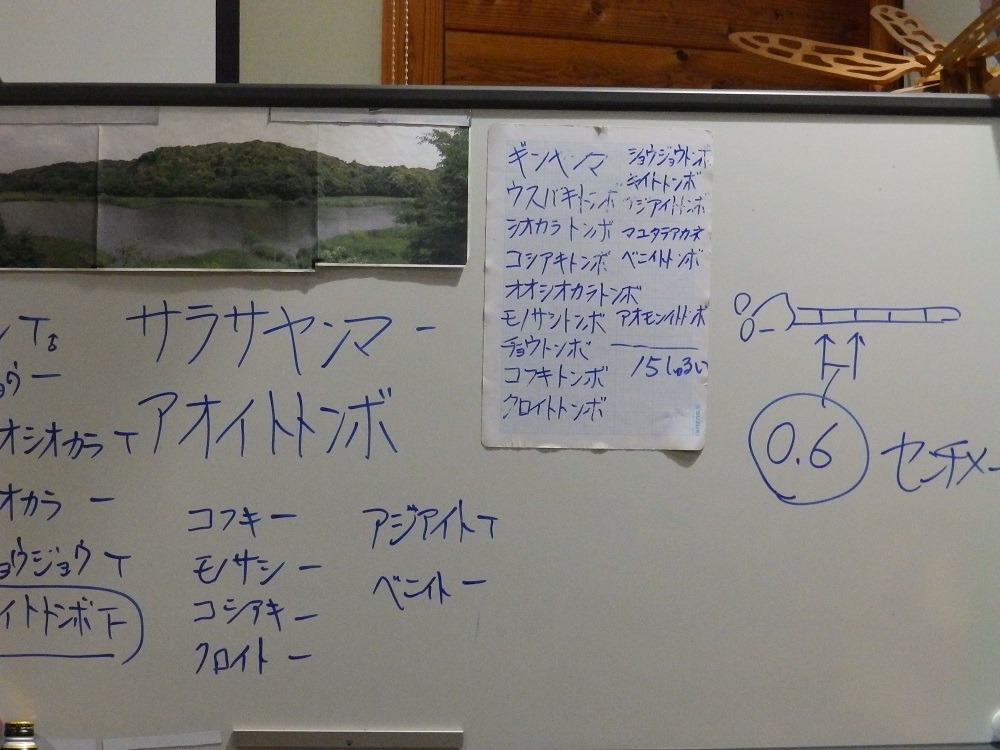 サラサヤンマー
アオイトトンボ
オシオカラT
オカラー
ョウジョウT
イトトンボT
コフキー
モノサシー
コシアキー
クロイトー
アジアイトT
ベニイトー
ギンヤンマ
ウスバキトンボ
シオカラトンボ
コシアキトンボ
オオシオカラトンボ
モノサシトンボ
チョウトンボ
コフキトンボ
クロイトトンボ
ショウジョウトンボ
キイトトンボ
アジアイトトンボ
マユタテアカネ
ベニイトトンボ
アオモンイトトンボ
15しゅるい
0.6 センチメー